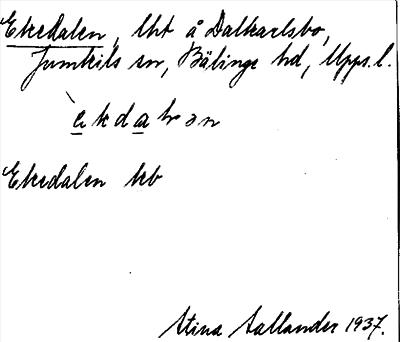 Ekedalen, lht å Dalkarlsbo,
Jumkils sn, Bälinge hd, Upps. l.
`ekdaɫən
Ekedalen kb
Stina Sallander 1937.